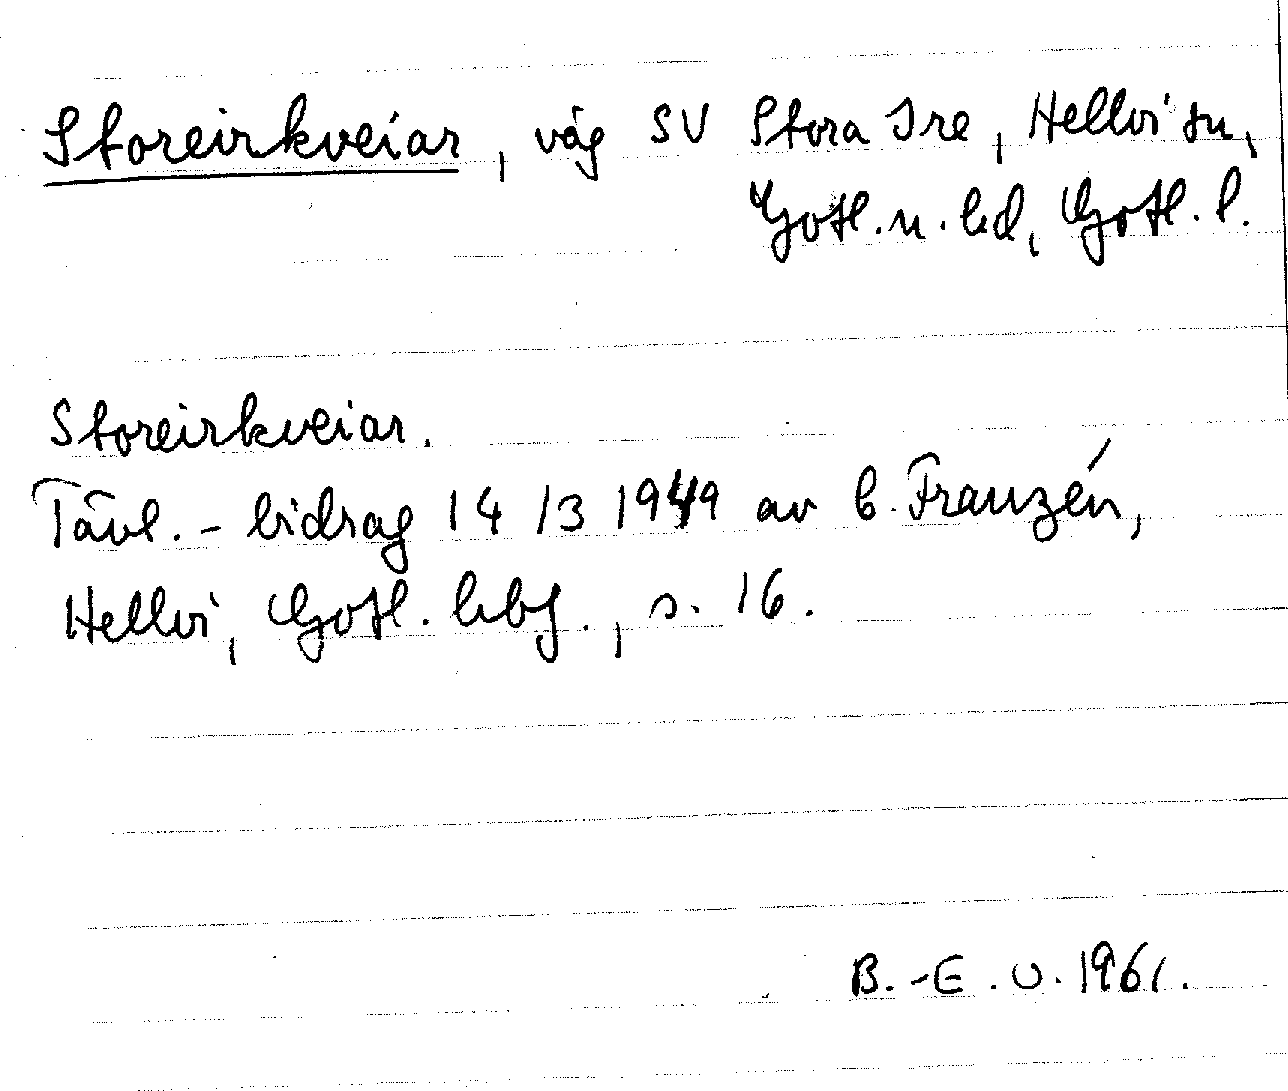 Storeirkveiar, väg SV Stora Ire, Hellvi sn,
Gotl. n. hd, Gotl. l.
Storeirkveiar.
Tävl.-bidrag 14/3 1949 av B. Franzén,
Hellvi, Gotl. hbf., s. 16.
B.-E. U. 1961.